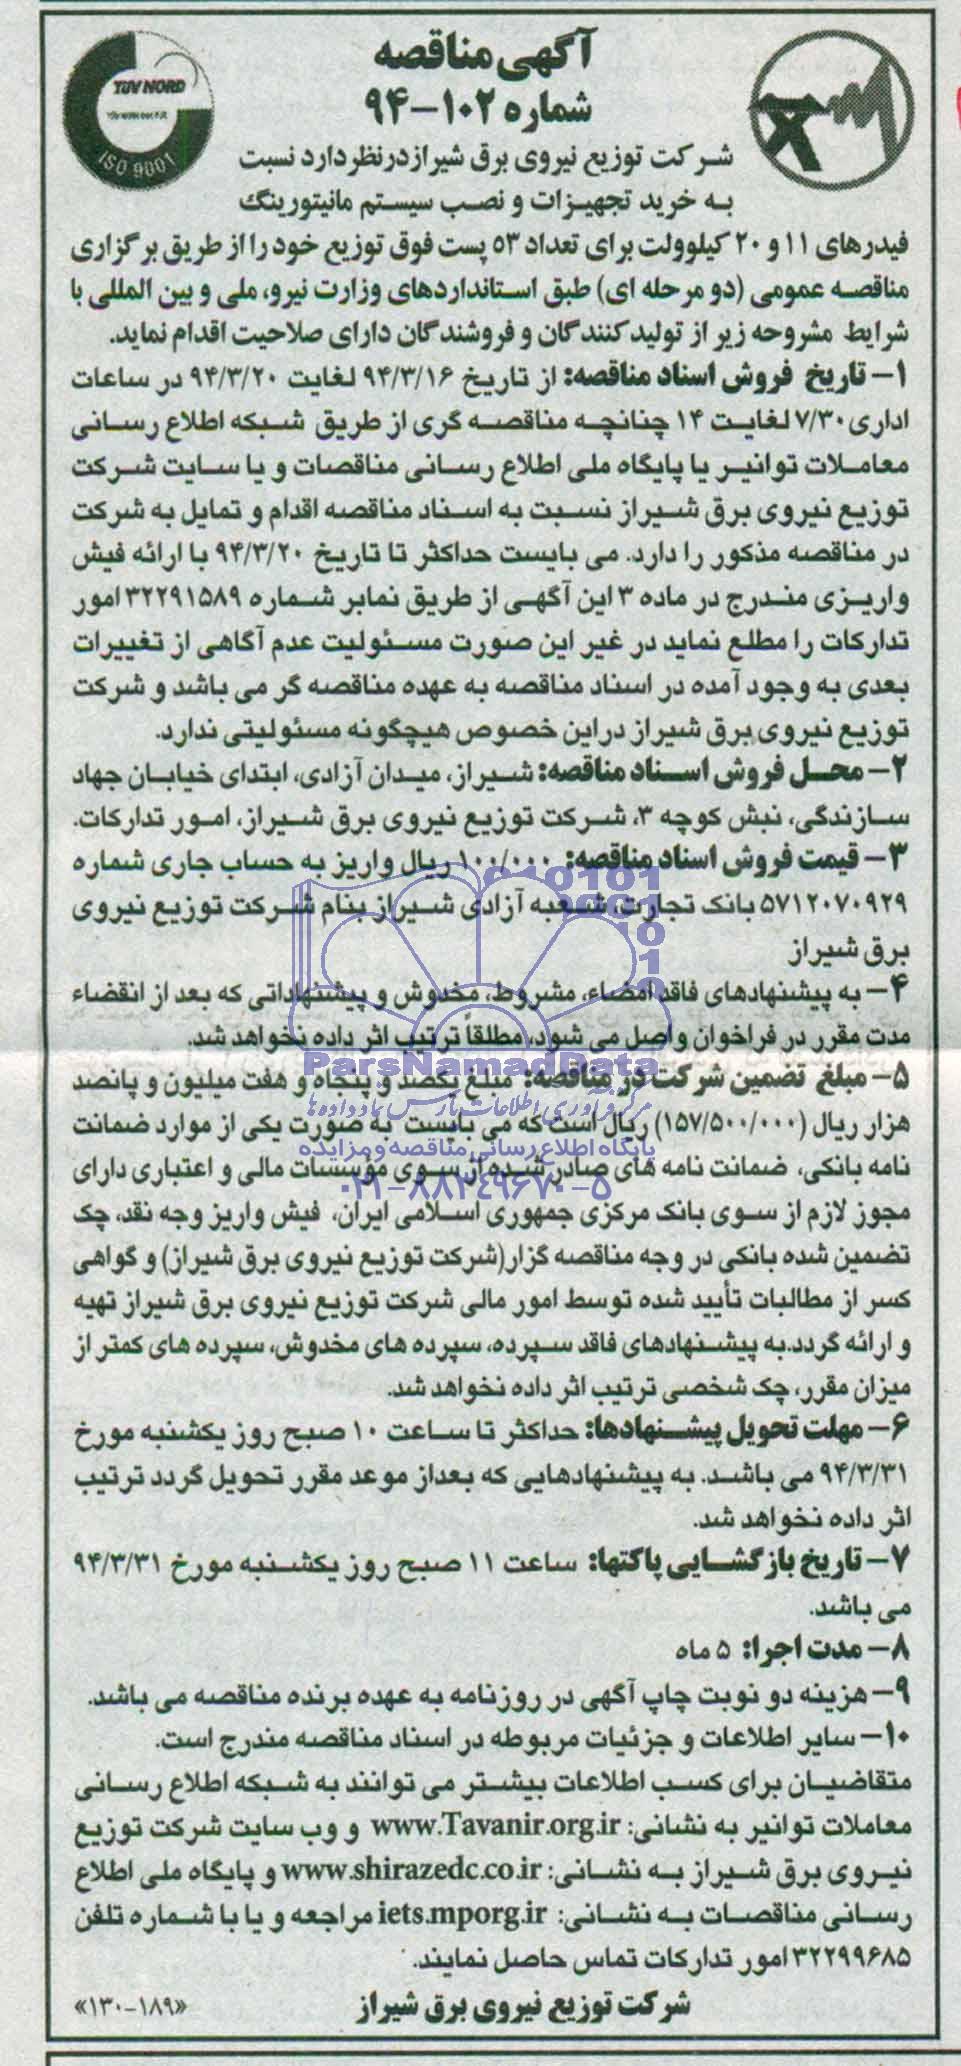 آگهی مناقصه
شماره ۱۰۲-۹۴
TUV NORD
ISO 9001
شرکت توزیع نیروی برق شیراز درنظر دارد نسبت
به خرید تجهیزات و نصب سیستم مانیتورینگ
فیدرهای ۱۱ و ۲۰ کیلوولت برای تعداد ۵۳ پست فوق توزیع خود را از طریق برگزاری
مناقصه عمومی (دو مرحله ای) طبق استانداردهای وزارت نیرو، ملی و بین المللی با
شرایط مشروحه زیر از تولیدکنندگان و فروشندگان دارای صلاحیت اقدام نماید.
۱- تاریخ فروش اسناد مناقصه: از تاریخ ۹۴/۳/۱۶ لغایت ۹۴/۳/۲۰ در ساعات
اداری ۷/۳۰ لغایت ۱۴ چنانچه مناقصه گری از طریق شبکه اطلاع رسانی
معاملات توانیر یا پایگاه ملی اطلاع رسانی مناقصات و یا سایت شرکت
توزیع نیروی برق شیراز نسبت به اسناد مناقصه اقدام و تمایل به شرکت
در مناقصه مذکور را دارد. می بایست حداکثر تا تاریخ ۹۴/۳/۲۰ با ارائه فیش
واریزی مندرج در ماده ۳ این آگهی از طریق نمابر شماره ۳۲۲۹۱۵۸۹ امور
تدارکات را مطلع نماید در غیر این صورت مسئولیت عدم آگاهی از تغییرات
بعدی به وجود آمده در اسناد مناقصه به عهده مناقصه گر می باشد و شرکت
توزیع نیروی برق شیراز دراین خصوص هیچگونه مسئولیتی ندارد.
۲- محل فروش اسناد مناقصه: شیراز، میدان آزادی، ابتدای خیابان جهاد
سازندگی، نبش کوچه ۳، شرکت توزیع نیروی برق شیراز، امور تدارکات.
۳- قیمت فروش اسناد مناقصه: ۱۰۰/۰۰۰ ریال واریز به حساب جاری شماره
۵۷۱۲۰۷۰۹۲۹ بانک تجارت، شعبه آزادی شیراز بنام شرکت توزیع نیروی
برق شیراز
۴- به پیشنهادهای فاقد امضاء، مشروط، مخدوش و پیشنهاداتی که بعد از انقضاء
مدت مقرر در فراخوان واصل می شود، مطلقاً ترتیب اثر داده نخواهد شد.
ParsNamadData
۵- مبلغ تضمین شرکت در مناقصه: مبلغ یکصد و پنجاه و هفت میلیون و پانصد
مرکز فرآوری اطلاعات پارس نماد داده ها
هزار ریال (۱۵۷/۵۰۰/۰۰۰) ریال است که می بایست به صورت یکی از موارد ضمانت
پایگاه اطلاع رسانی مناقصه و مزایده
نامه بانکی، ضمانت نامه های صادر شده از سوی مؤسسات مالی و اعتباری دارای
۰۲۱-۸۸۳۴۹۶۷۰-۵
مجوز لازم از سوی بانک مرکزی جمهوری اسلامی ایران، فیش واریز وجه نقد، چک
تضمین شده بانکی در وجه مناقصه گزار(شرکت توزیع نیروی برق شیراز) و گواهی
کسر از مطالبات تأیید شده توسط امور مالی شرکت توزیع نیروی برق شیراز تهیه
و ارائه گردد.به پیشنهادهای فاقد سپرده، سپرده های مخدوش، سپرده های کمتر از
میزان مقرر، چک شخصی ترتیب اثر داده نخواهد شد.
۶- مهلت تحویل پیشنهادها: حداکثر تا ساعت ۱۰ صبح روز یکشنبه مورخ
۹۴/۳/۳۱ می باشد. به پیشنهادهایی که بعداز موعد مقرر تحویل گردد ترتیب
اثر داده نخواهد شد.
۷- تاریخ بازگشایی پاکتها: ساعت ۱۱ صبح روز یکشنبه مورخ ۹۴/۳/۳۱
می باشد.
۸- مدت اجرا: ۵ ماه
۹- هزینه دو نوبت چاپ آگهی در روزنامه به عهده برنده مناقصه می باشد.
۱۰- سایر اطلاعات و جزئیات مربوطه در اسناد مناقصه مندرج است.
متقاضیان برای کسب اطلاعات بیشتر می توانند به شبکه اطلاع رسانی
معاملات توانیر به نشانی: www.Tavanir.org.ir و وب سایت شرکت توزیع
نیروی برق شیراز به نشانی: www.shirazedc.co.ir و پایگاه ملی اطلاع
رسانی مناقصات به نشانی: iets.mporg.ir مراجعه و یا با شماره تلفن
۳۲۲۹۹۶۸۵ امور تدارکات تماس حاصل نمایند.
شرکت توزیع نیروی برق شیراز
«۱۳۰-۱۸۹»